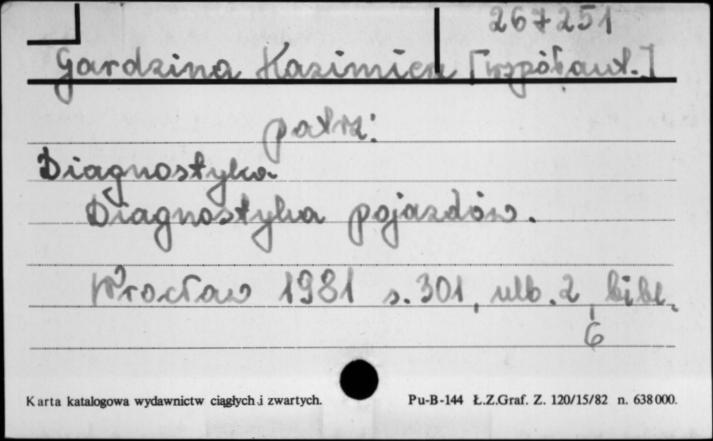 267251
Gardzina Kazimierz [współaut.]
patrz:
Diagnostyka
Diagnostyka pojazdów.
Wrocław 1981 s. 301, ulb. 2 bibl.
6
Karta katalogowa wydawnictw ciągłych i zwartych. Pu-B-144 Ł.Z.Graf. Z. 120/15/82 n. 638 000.